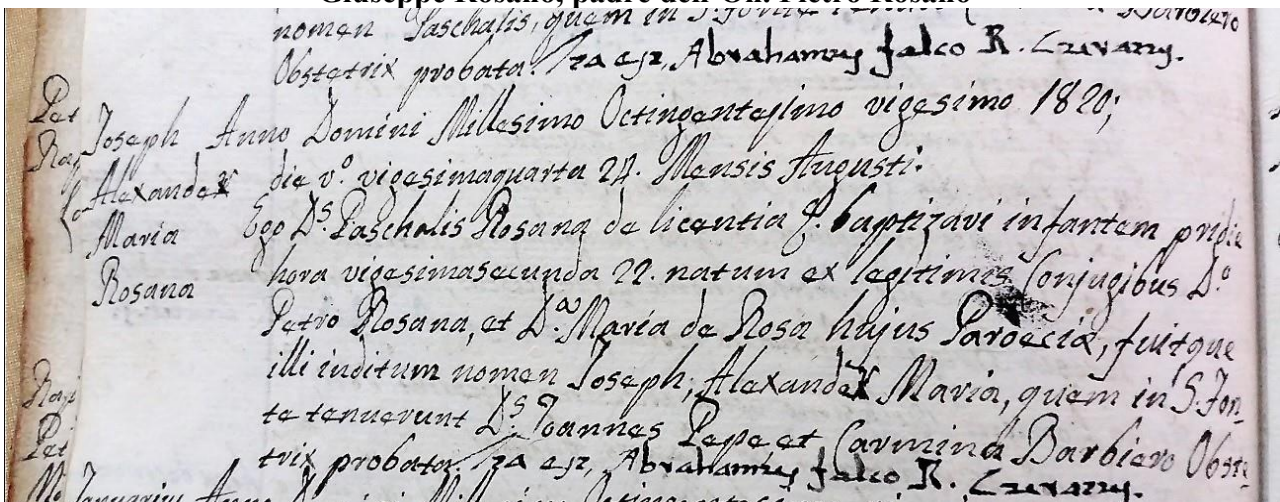 Giuseppe Rosano, padre dell'On. Pietro Rosano
nomen Paschalis, quem in S. Fonte Barbiero
Obstetrix probata. Ita est, Abrahamus Falco R.
Joseph Anno Domini Millesimo Octingentesimo vigesimo 1820;
Alexander die v.º vigesimaquarta 24. Mensis Augusti.
Maria Ego D.s Paschalis Rosana de licentia P. baptizavi infantem pridie
Rosana hora vigesimasecunda 22. natum ex legitimis Conjugibus D.º
Petro Rosana, et D.a Maria de Rosa hujus Paroeciæ, fuitque
illi inditum nomen Joseph, Alexander Maria, quem in S. Fon-
te tenuerunt D.s Joannes Pepe et Carmina Barbiero Obste-
trix probata. Ita est, Abrahamus Falco R.
Januarius Anno Domini Millesimo